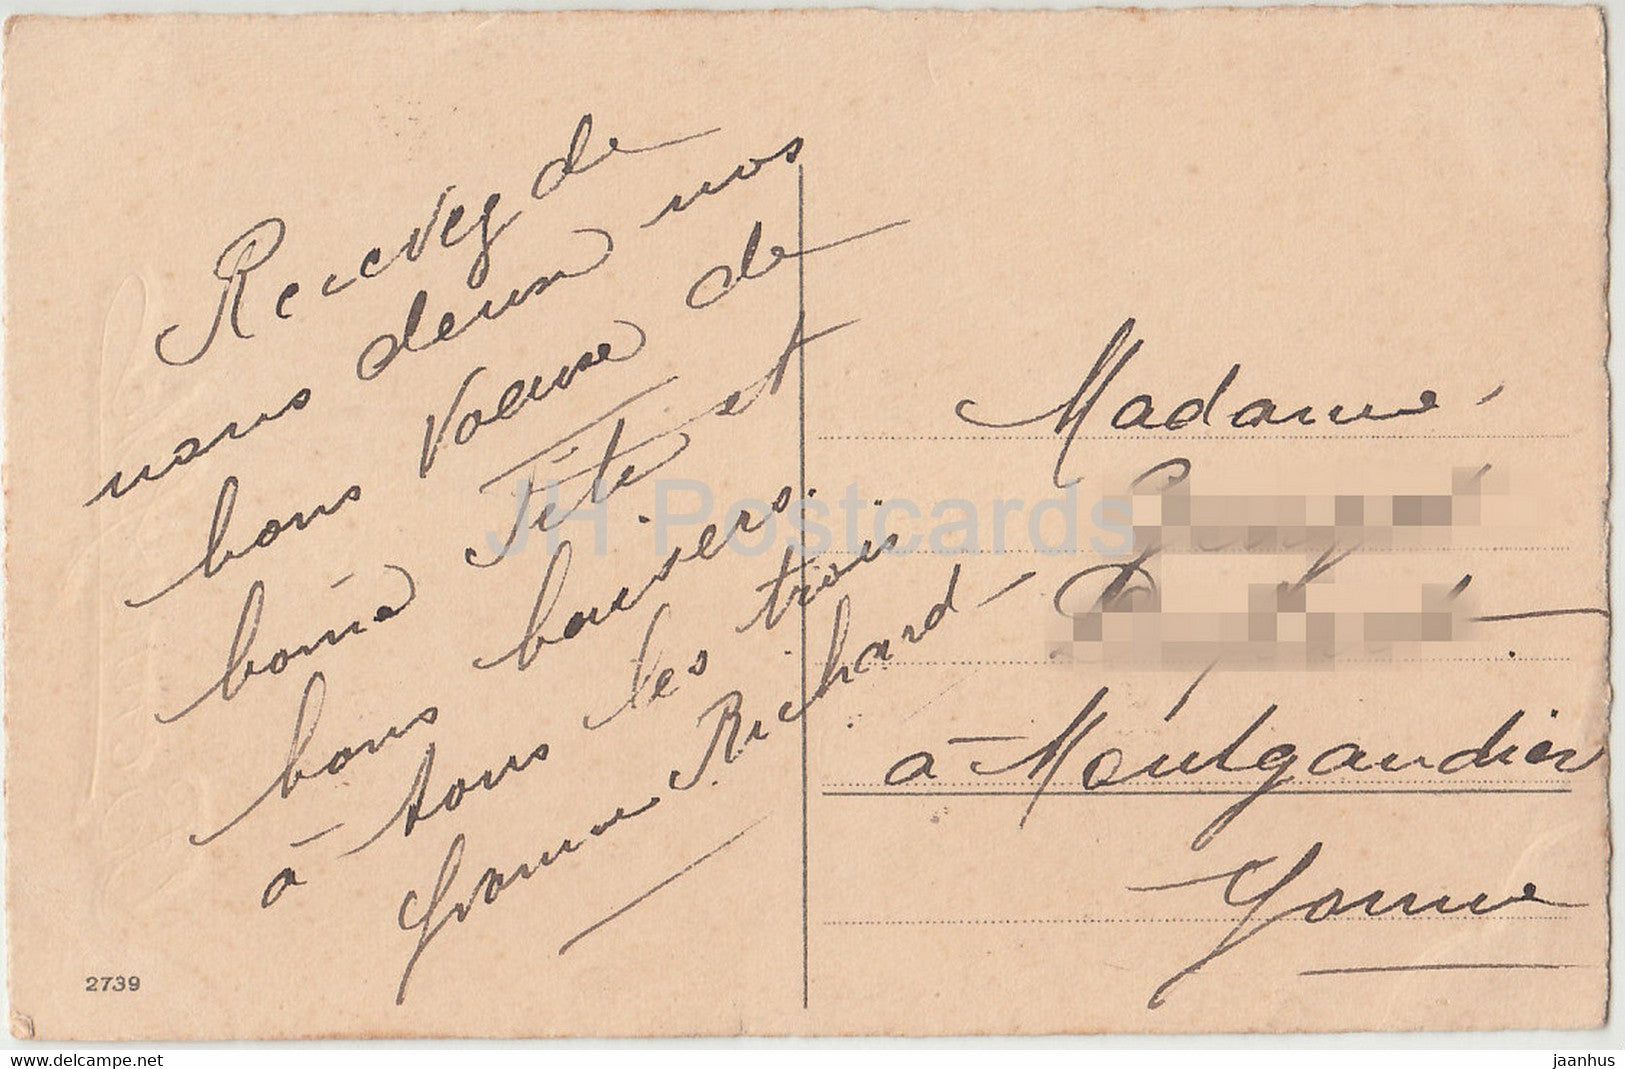 Recevez de
nous deux nos
bons voeux de
bonne Fête et
bons baisers
à tous les trois
Yvonne Richard
Madame
à Montgaudier
Yonne
2739
JH Postcards
www.delcampe.net
jaanhus